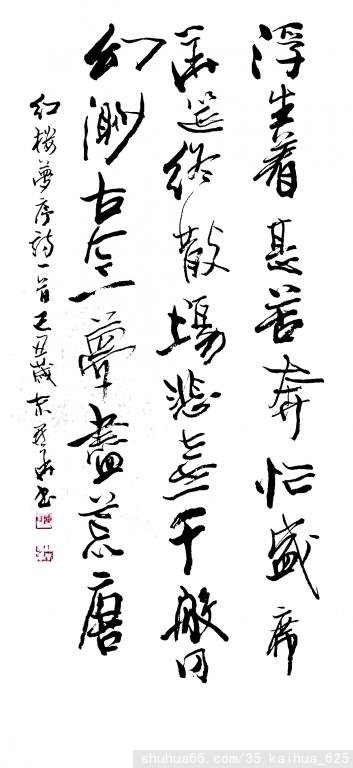 浮生着甚苦奔忙盛席
華筵终散場悲喜千般同
幻渺古今一夢盡荒唐
红楼夢序诗一首己丑歲书
shuhua66.com/35 kaihua_625